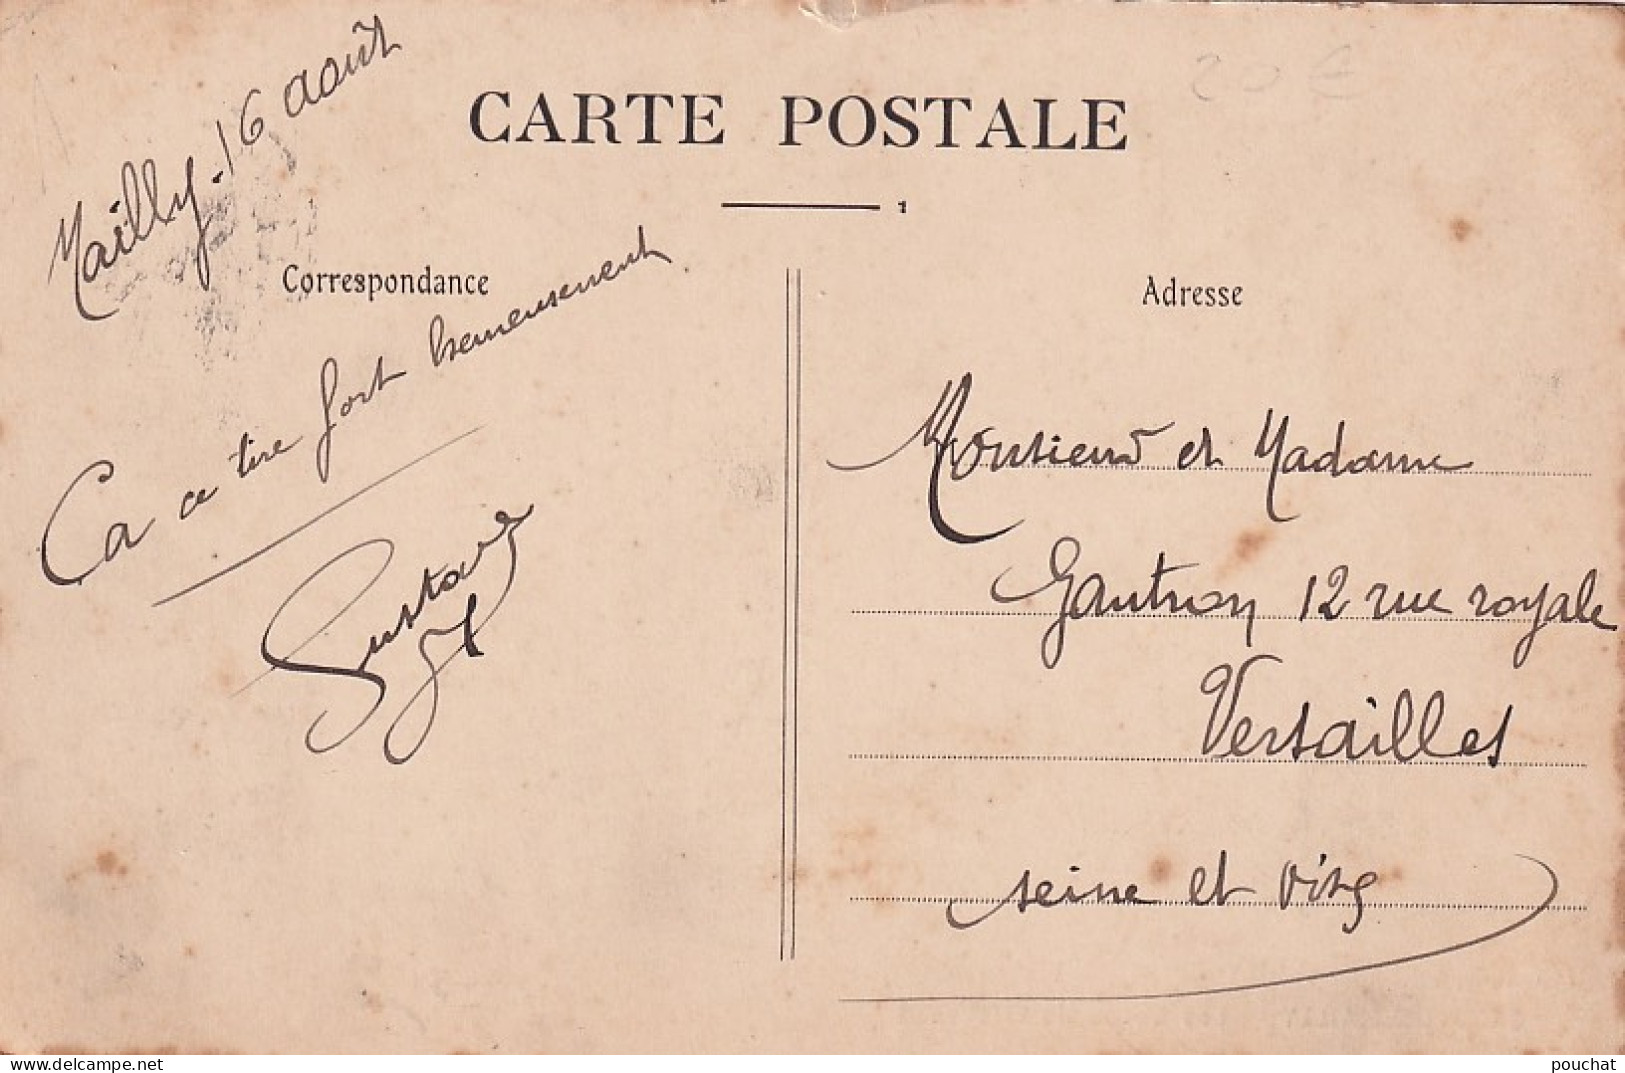 20 €
CARTE POSTALE
1
Mailly. 16 août
Correspondance
Ca ce tire fort
Gustave
Adresse
Monsieur et Madame
Gautron 12 rue royale
Versailles
seine et oise
delcampe.net
pouchat